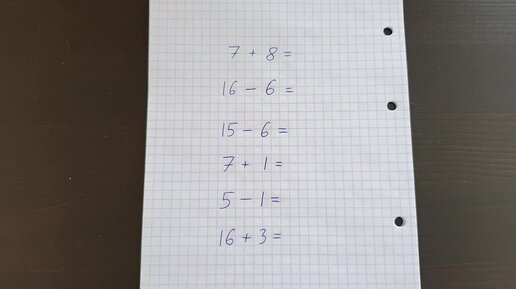 7 + 8 =
16 - 6 =
15 - 6 =
7 + 1 =
5 - 1 =
16 + 3 =